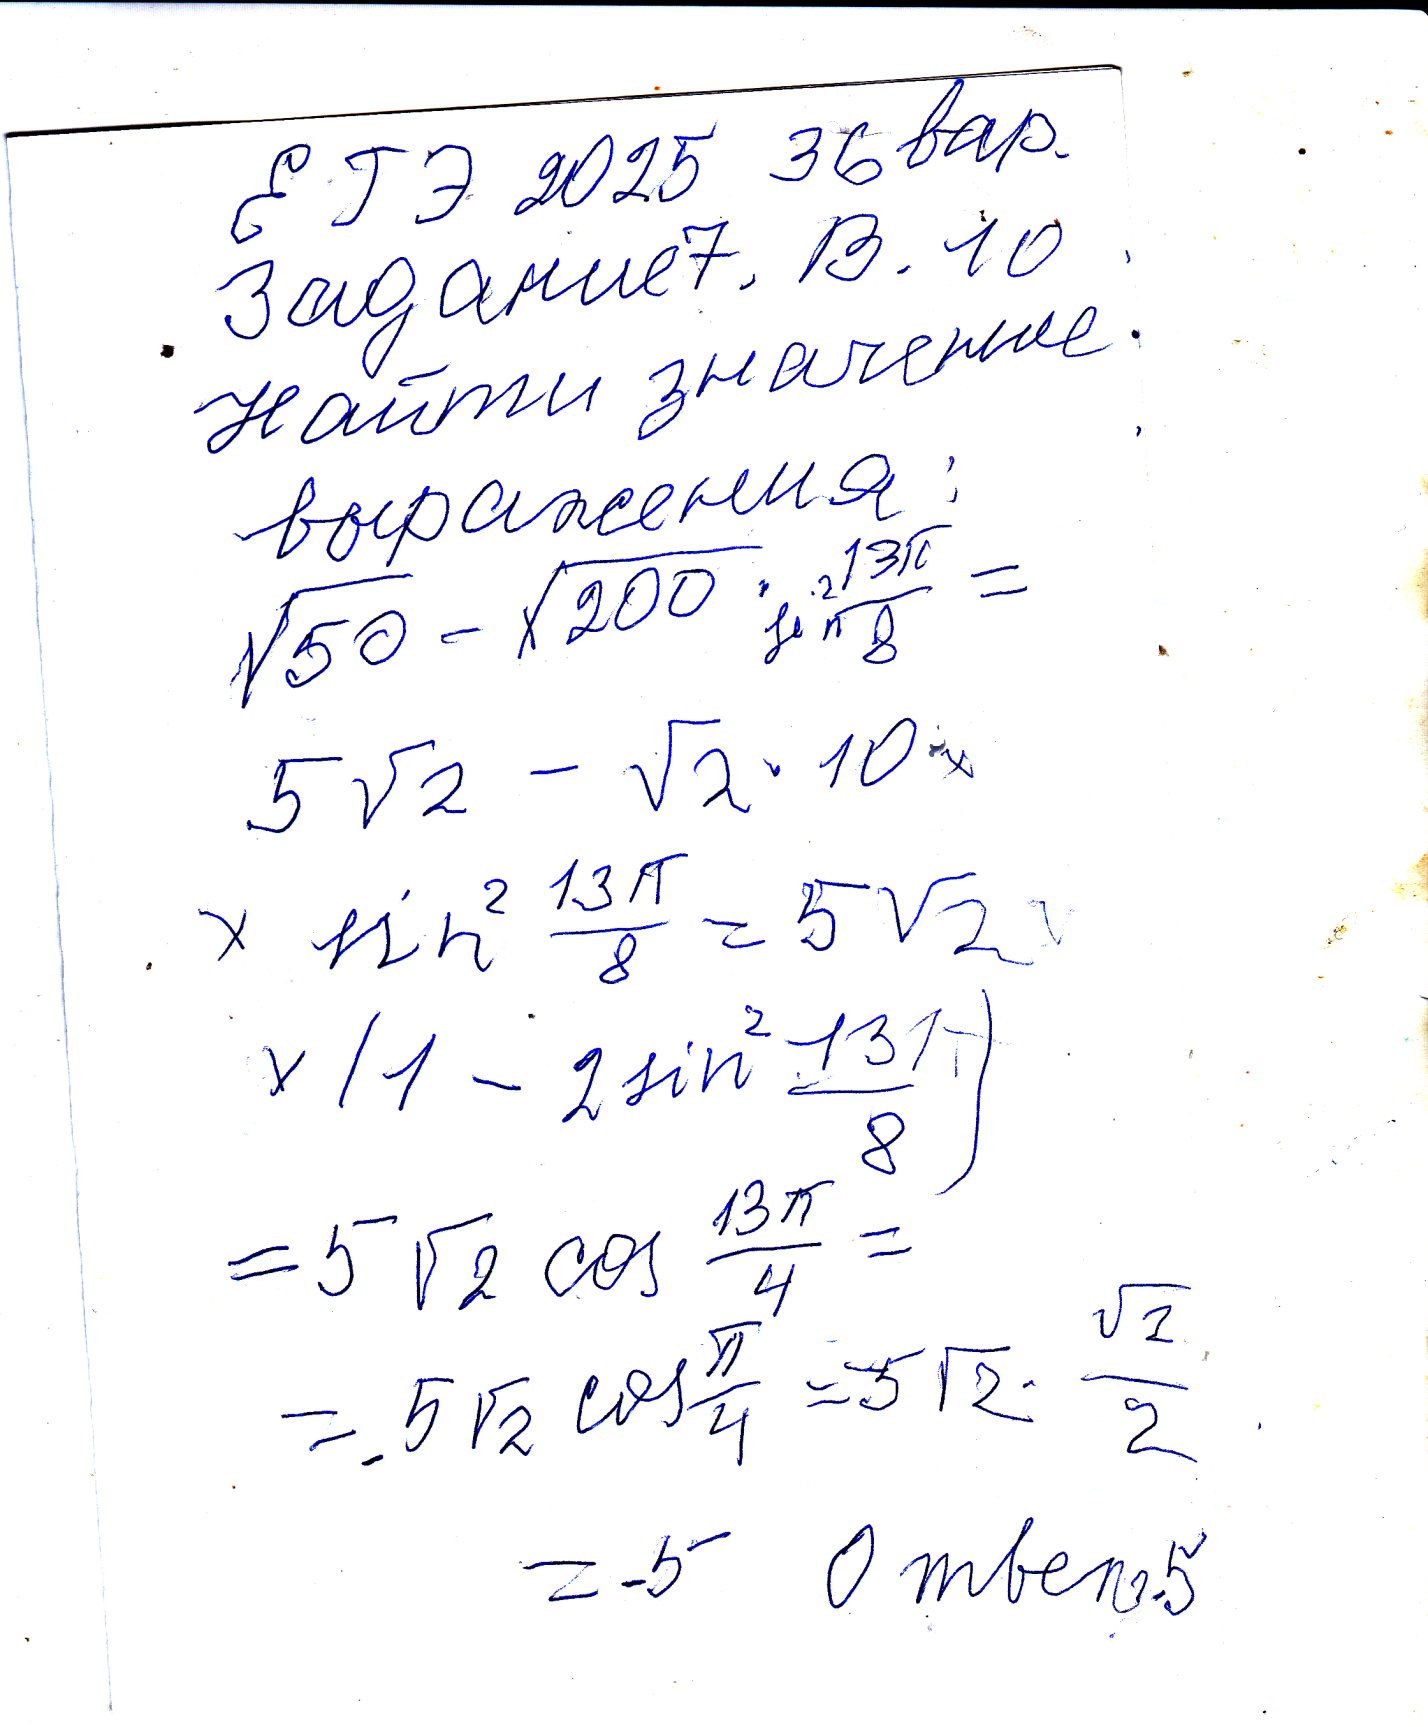 ЕГЭ 2025 36 вар.
Задание 7. В. 10
Найти значение
выражения:
√50 - √200 · sin² 13π/8 =
5√2 - √2 · 10 ×
× sin² 13π/8 = 5√2 ×
× (1 - 2 sin² 13π/8)
= 5√2 cos 13π/4 =
= -5√2 cos π/4 = -5√2 · √2/2
= -5 Ответ -5